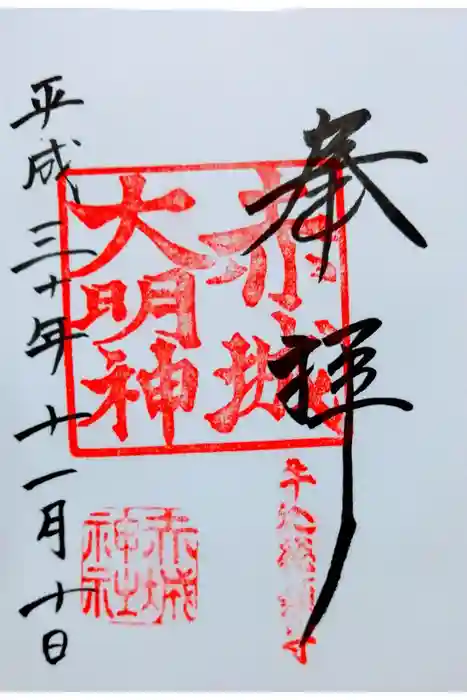 奉拝
赤城
大明神
牛込総鎮守
赤城
神社
平成三十年十一月十日